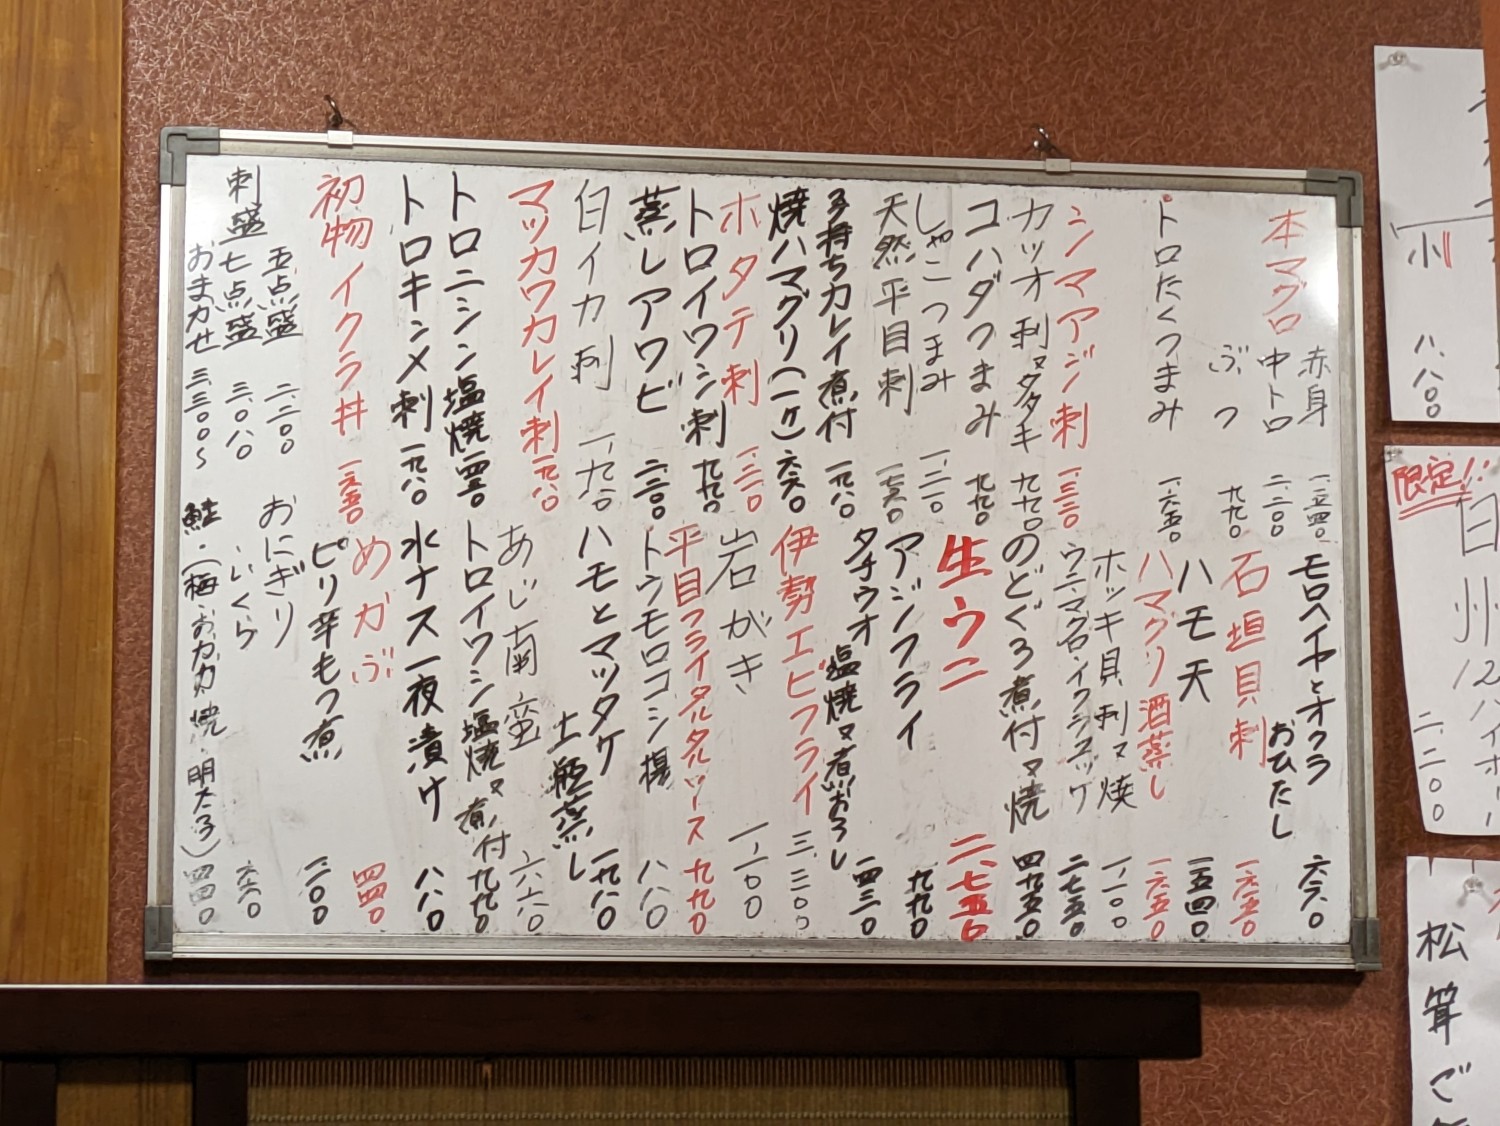 本マグロ
赤身 一、五四〇
中トロ 二、二〇〇
ぶつ 九九〇
トロたくつまみ 一、六五〇
シマアジ刺 一、三二〇
カツオ刺又タタキ 九九〇
コハダつまみ 九九〇
しゃこつまみ 一、二一〇
天然平目刺
子持ちカレイ煮付 一九八〇
焼ハマグリ(一ケ) 六六〇
ホタテ刺 一、二一〇
トロイワシ刺 九九〇
蒸しアワビ 二二〇〇
白イカ刺 一、九八〇
マツカワカレイ刺 一九八〇
トロニシン塩焼
トロキンメ刺 一九八〇
初物イクラ丼 一六五〇
刺盛
五点盛 二、二〇〇
七点盛 三、〇八〇
おまかせ 三、三〇〇〜
モロヘイヤとオクラ
おひたし 六六〇
石垣貝刺 一六五〇
ハモ天 一五四〇
ハマグリ酒蒸し 一六五〇
ホッキ貝刺又焼 一、一〇〇
ウニマグロイクラユッケ 二七五〇
のどぐろ煮付又焼 四九五〇
生ウニ 二、七五〇
アジフライ 九九〇
タチウオ塩焼又煮おろし 一四三〇
伊勢エビフライ 三、三〇〇
岩がき 一、一〇〇
平目フライタルタルソース 九九〇
トウモロコシ揚 八八〇
ハモとマツタケ
土瓶蒸し 一九八〇
あじ南蛮 六六〇
トロイワシ塩焼又煮付 九九〇
水ナス一夜漬け 八八〇
めかぶ 四四〇
ピリ辛もつ煮 一、一〇〇
おにぎり
いくら 六六〇
鮭・(梅・おかか・焼・明太子) 四四〇
八、八〇〇
限定!!
白州
12ハイボール
二、二〇〇
松茸ご